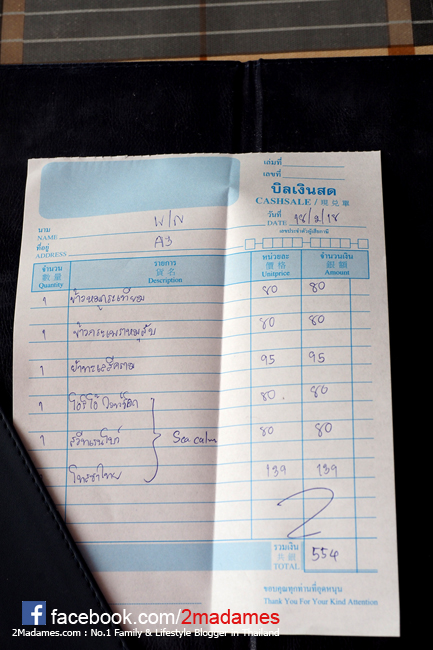 เล่มที่
เลขที่
บิลเงินสด
CASHSALE / 現兌單
วันที่
DATE 18/2/18
เลขประจำตัวผู้เสียภาษี
นาม
NAME W/N
ที่อยู่
ADDRESS A3
จำนวน รายการ หน่วยละ จำนวนเงิน
數量 貨名 價格 銀額
Quantity Description Unitprice Amount
1 ข้าวหมูกระเทียม 80 80
1 ข้าวกระเพราหมูสับ 80 80
1 95 95
1 80 80
1 Sea calm 80 80
โกษชาไทย 139 139
2
รวมเงิน
共銀
TOTAL 554
ขอบคุณทุกท่านที่อุดหนุน
Thank You For Your Kind Attention
facebook.com/2madames
2Madames.com : No.1 Family & Lifestyle Blogger in Thailand